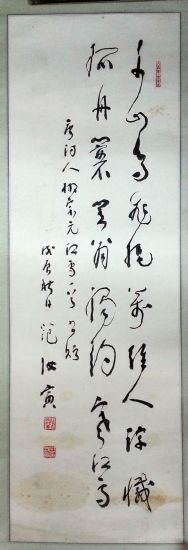 千山鳥飛絕萬徑人蹤滅
孤舟蓑笠翁獨釣寒江雪
唐詩人柳宗元江雪一首
戊辰秋日 范汝寅